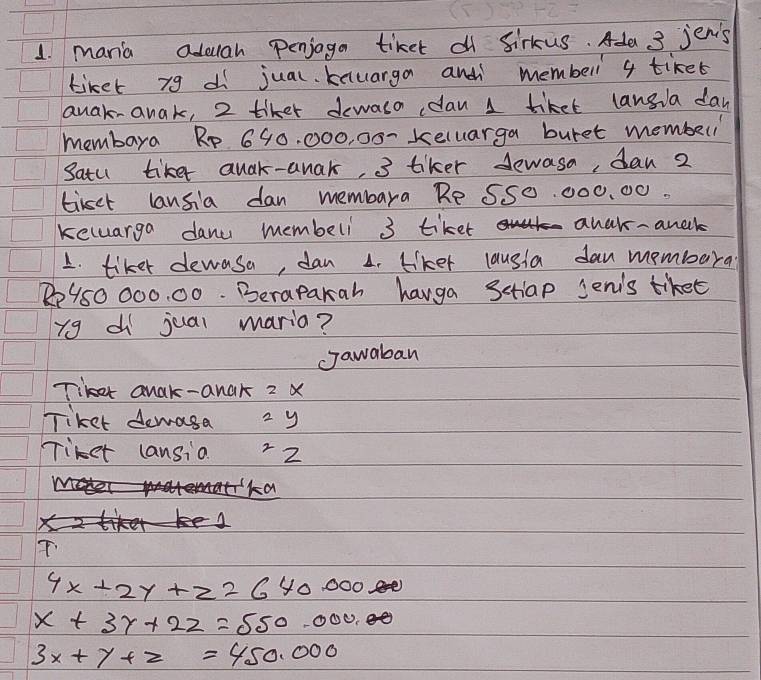 1. Maria adalah Penjaga tiket di Sirkus. Ada 3 jenis
tiket yg di jual. keluarga andi membeli 4 tiket
anak-anak, 2 tiket dewasa, dan 1 tiket lansia dan
membaya Rp 640.000,00- keluarga buret membeli
Satu tiket anak-anak, 3 tiker dewasa, dan 2
tiket lansia dan membaya Rp 550.000,00.
Keluarga danu membeli 3 tiket anak-anak
1. tiket dewasa, dan 1. tiket lansia dan membaya
Rp 450 000.00. Berapakah harga Setiap jenis tiket
yg di jual maria?
Jawaban
Tiket anak-anak = x
Tiket dewasa = y
Tiket lansia = z
matematika
x = tiker ke 1
T.
4x + 2y + z = 640.000.00
x + 3y + 2z = 550.000.00
3x + y + z = 450.000